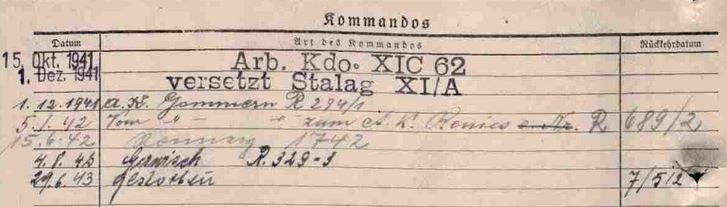 Kommandos
Datum Art des Kommandos Rückkehrdatum
15. Okt. 1941 Arb. Kdo. XIC 62
1. Dez. 1941 versetzt Stalag XI/A
1.12.1941 a.K. Gommern R 294/1
5.1.42 Vom " " zum A.K. R 689/2
15.6.42 1742
4.8.42 R. 329-3
29.6.43 gestorben 7/512